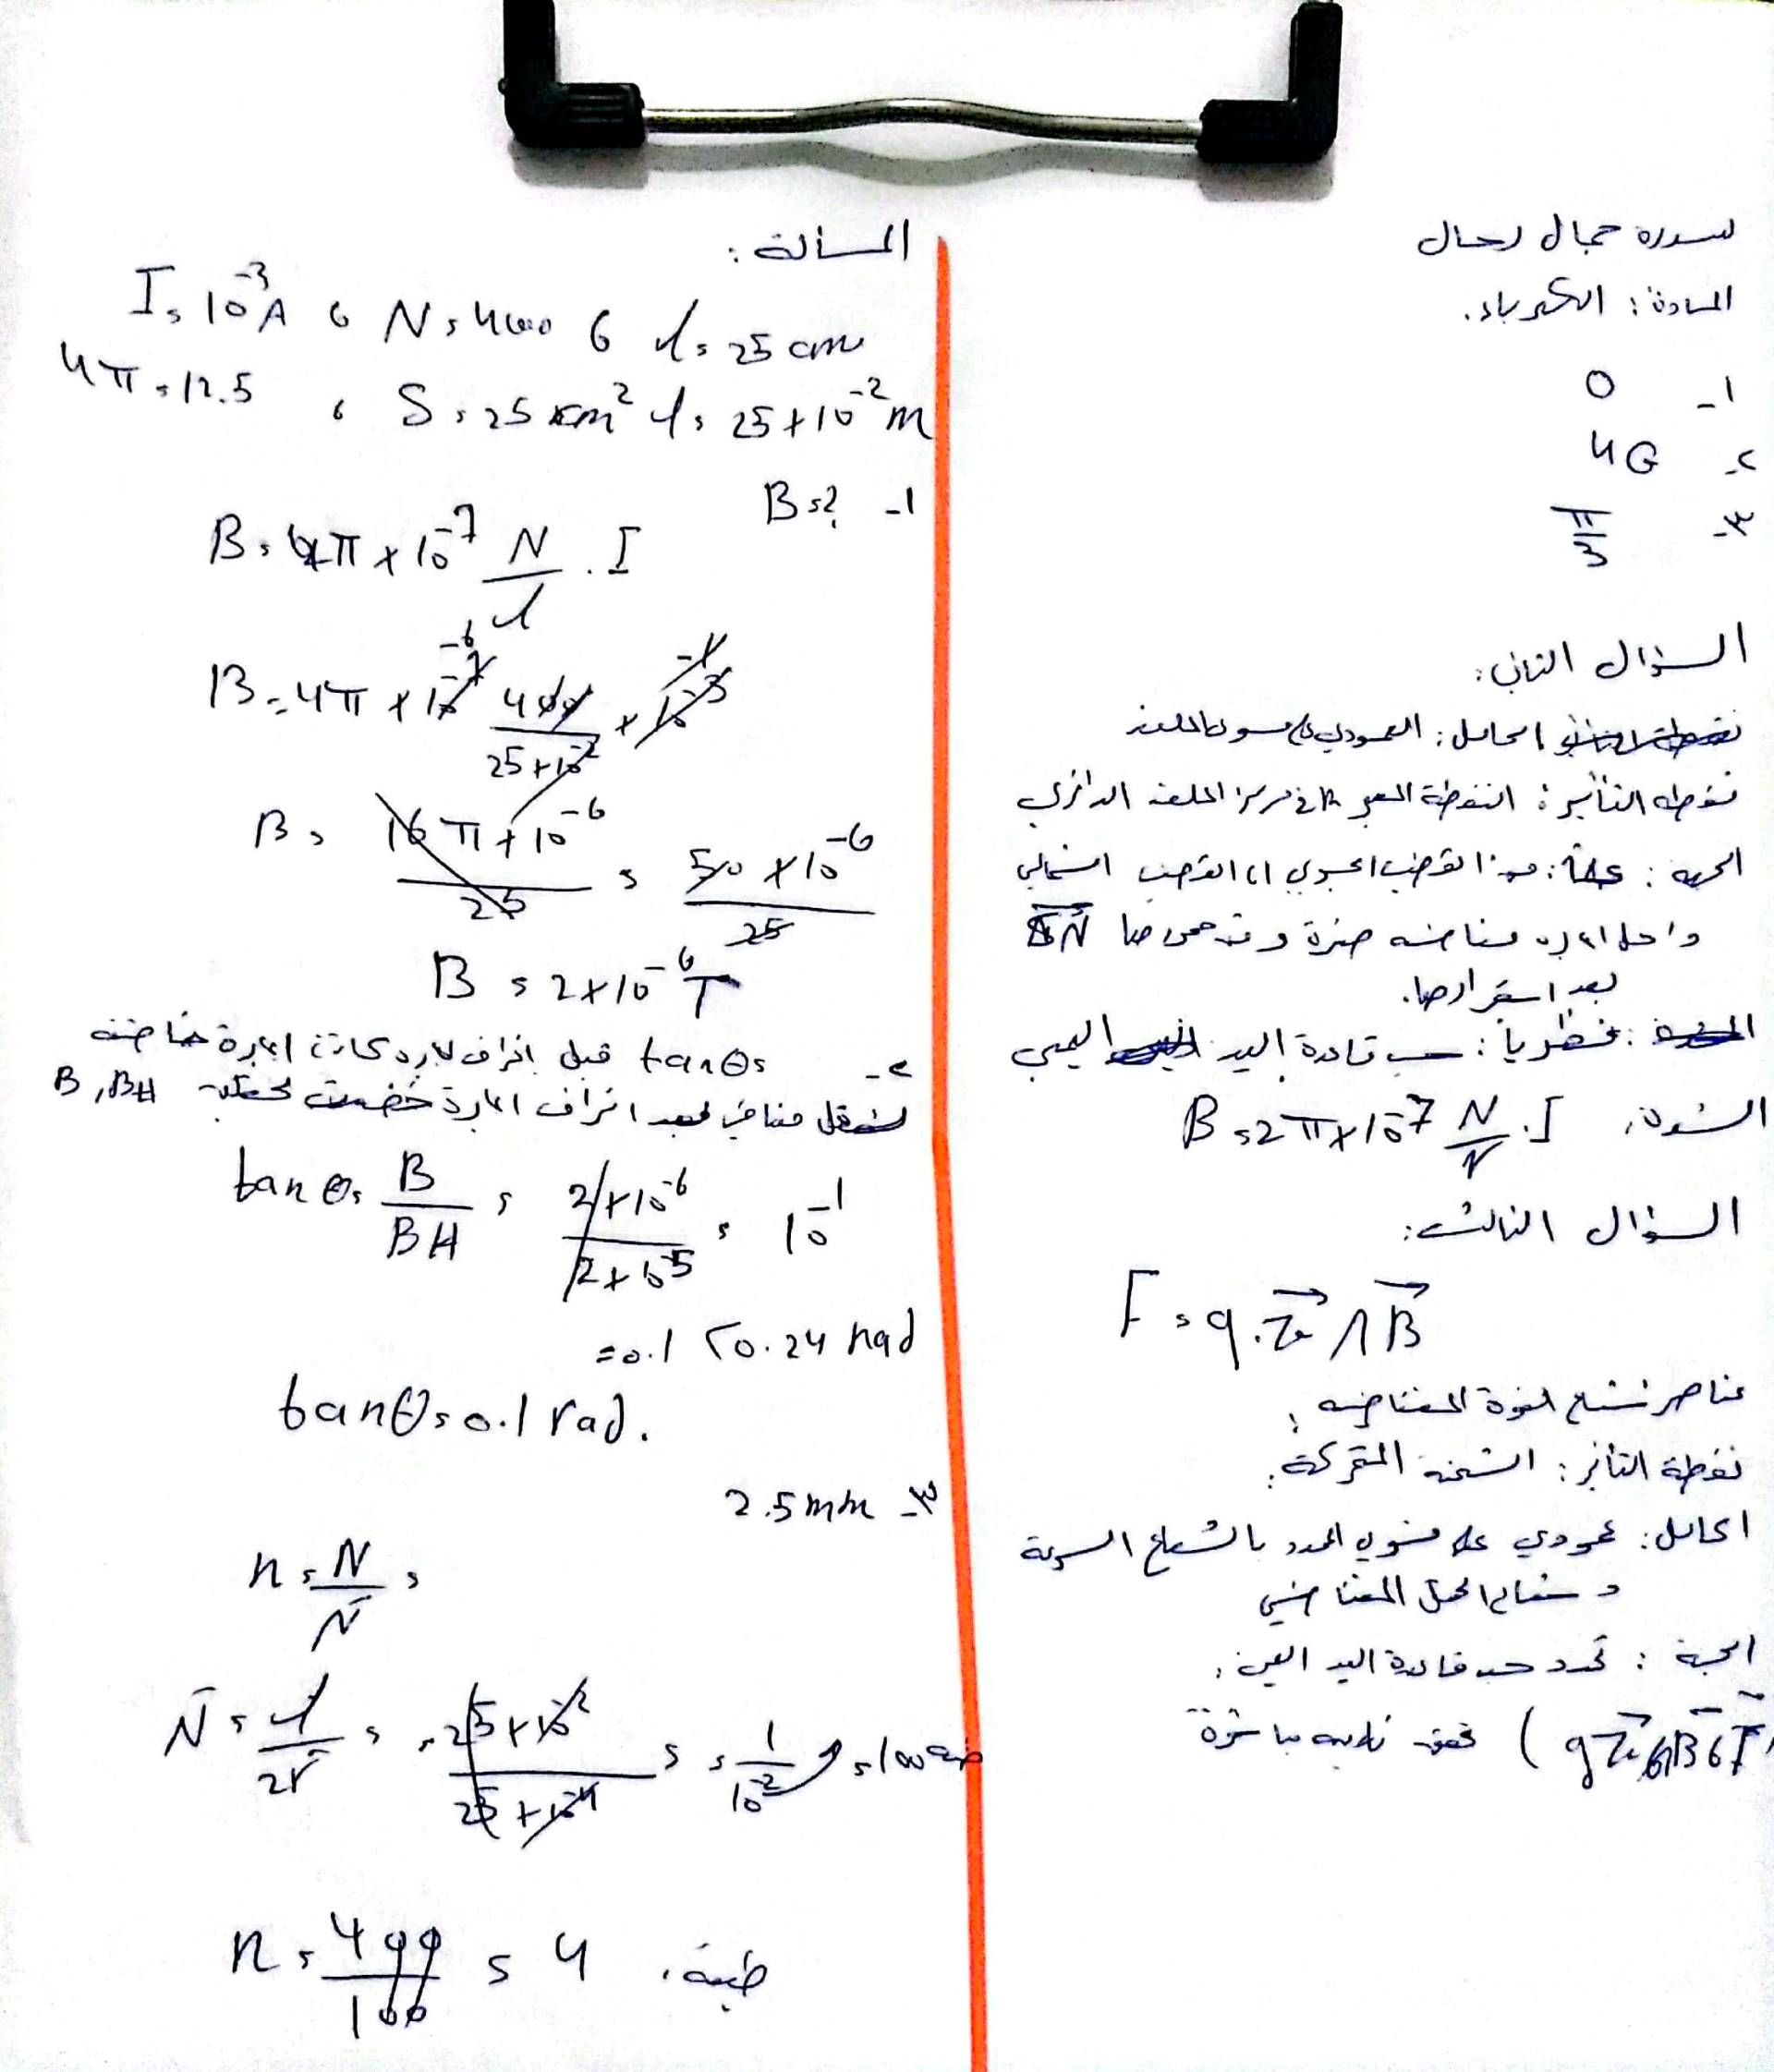 جمال رحال
المادة: الكهرباء.
1- 0
2- 4G
3- π/3
السؤال الثاني:
الحامل: العمودي على مستوي الملف
نقطة التأثير: النقطة مركز الملف الدائري
الجهة: عملياً: من القطب الجنوبي إلى القطب الشمالي
داخل إبرة مغناطيسية صغيرة
بعد استقرارها.
نظرياً: حسب قاعدة اليد اليمنى
الشدة: B = 2π×10⁻⁷ N/r . I
السؤال الثالث:
F = q.v⃗ ∧ B⃗
عناصر شعاع القوة المغناطيسية:
نقطة التأثير: الشحنة المتحركة.
الحامل: عمودي على مستوي المحدد بالشعاع السرعة
وشعاع الحقل المغناطيسي
الجهة: تحدد حسب قاعدة اليد اليمنى:
(qv⃗, B⃗, F⃗) تحقق ثلاثية مباشرة
المسألة:
I = 10⁻³ A , N = 400 , l = 25 cm
4π = 12.5 , S = 25 cm² l = 25×10⁻² m
1- B = ?
B = 4π × 10⁻⁷ N/l . I
B = 4π × 10⁻⁷ 400/25×10⁻² × 10⁻³
B = 16π×10⁻⁶/25 = 50×10⁻⁶/25
B = 2×10⁻⁶ T
2- tanθ = قبل انحراف الإبرة كانت الإبرة خاضعة
بعد انحراف الإبرة خضعت B, BH
tanθ = B/BH = 2×10⁻⁶/2×10⁻⁵ = 10⁻¹
= 0.1 < 0.24 rad
tanθ = 0.1 rad.
3- 2.5 mm
n = N/N' =
N' = l/2r' = 25×10⁻²/25×10⁻⁴ = 1/10⁻² = 100
n = 400/100 = 4 طبقة.